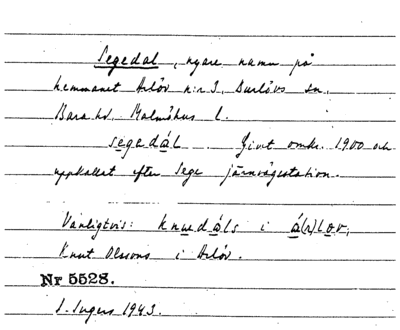 Segedal, nyare namn på
hemmanet Arlöv n:r 3, Burlövs sn,
Bara hd, Malmöhus l.
segedál Givet omkr. 1900 och
uppkallat efter Sege järnvägsstation.
Vanligtvis: knuedáls i á(r)lov,
Knut Olssons i Arlöv.
Nr 5528.
S. Ingers 1943.